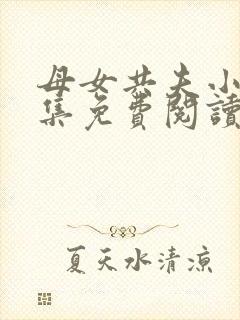 母女共夫小
集免費閱讀
夏天水清涼